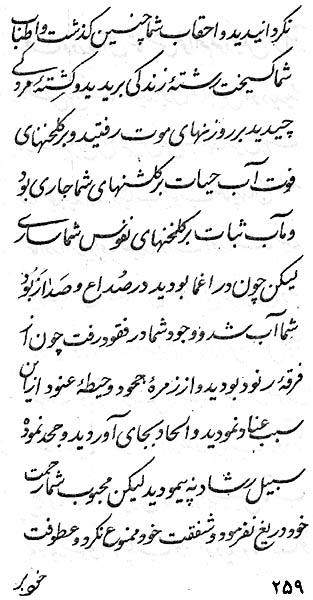 نکردانیدید و احقاب شما چنین کذشت و اطناب
شما کسیخت رشتهٔ زندکی بریدید و کِشتهٔ مردکی
چیدید بر روزنهای موت رفتید و بر کلخنهای
فوت آب حیات بر کلشنهای شما جاری بود
و مآب ثبات بر کلخنهای نفوس شما ساری
لیکن چون در اغما بودید در صُداع و صَدا زَ بُود
شما آب شد و وجود شما در فقود رفت چون از
فرقهٔ رنود بودید و از زمرهٔ جحود و حیطهٔ عنود از یان
سبب عناد نمودید و الحاد بجای آوردید و جحد نموده
سبیل رشاد نه پیمودید لیکن محبوب شما رحمت
خود دریغ نفرمود و شفقت خود ممنوع نکرد و عطوفت
خود بر
۲۵۹